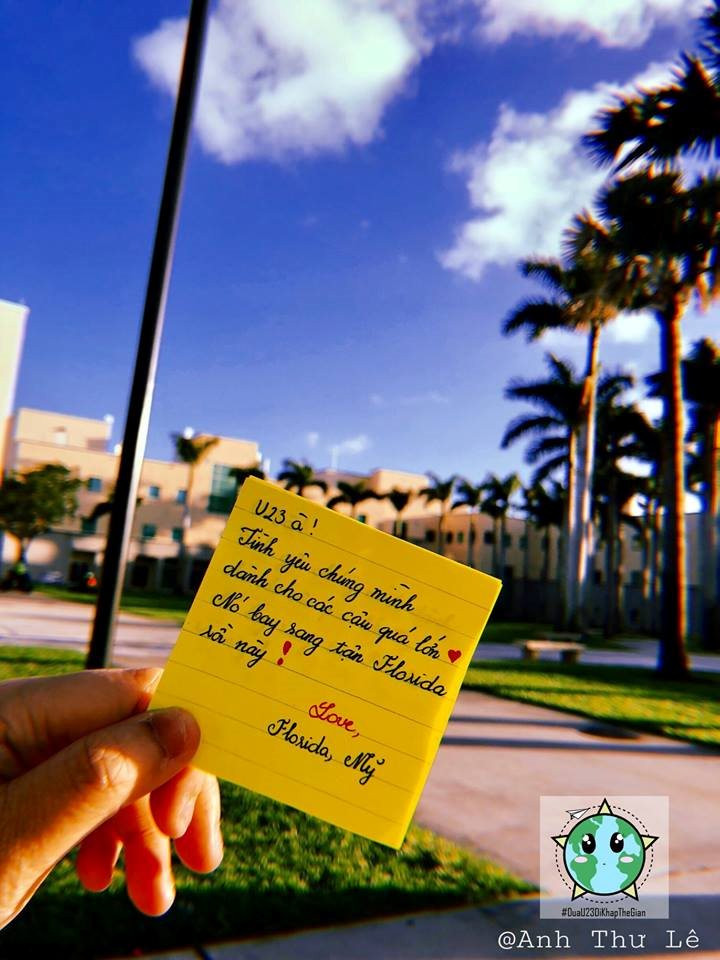 U23 à !
Tình yêu chúng mình
dành cho các cậu quá lớn
Nó bay sang tận Florida
rồi này !
Love,
Florida, Mỹ
#DuaU23DiKhapTheGian
@Anh Thư Lê